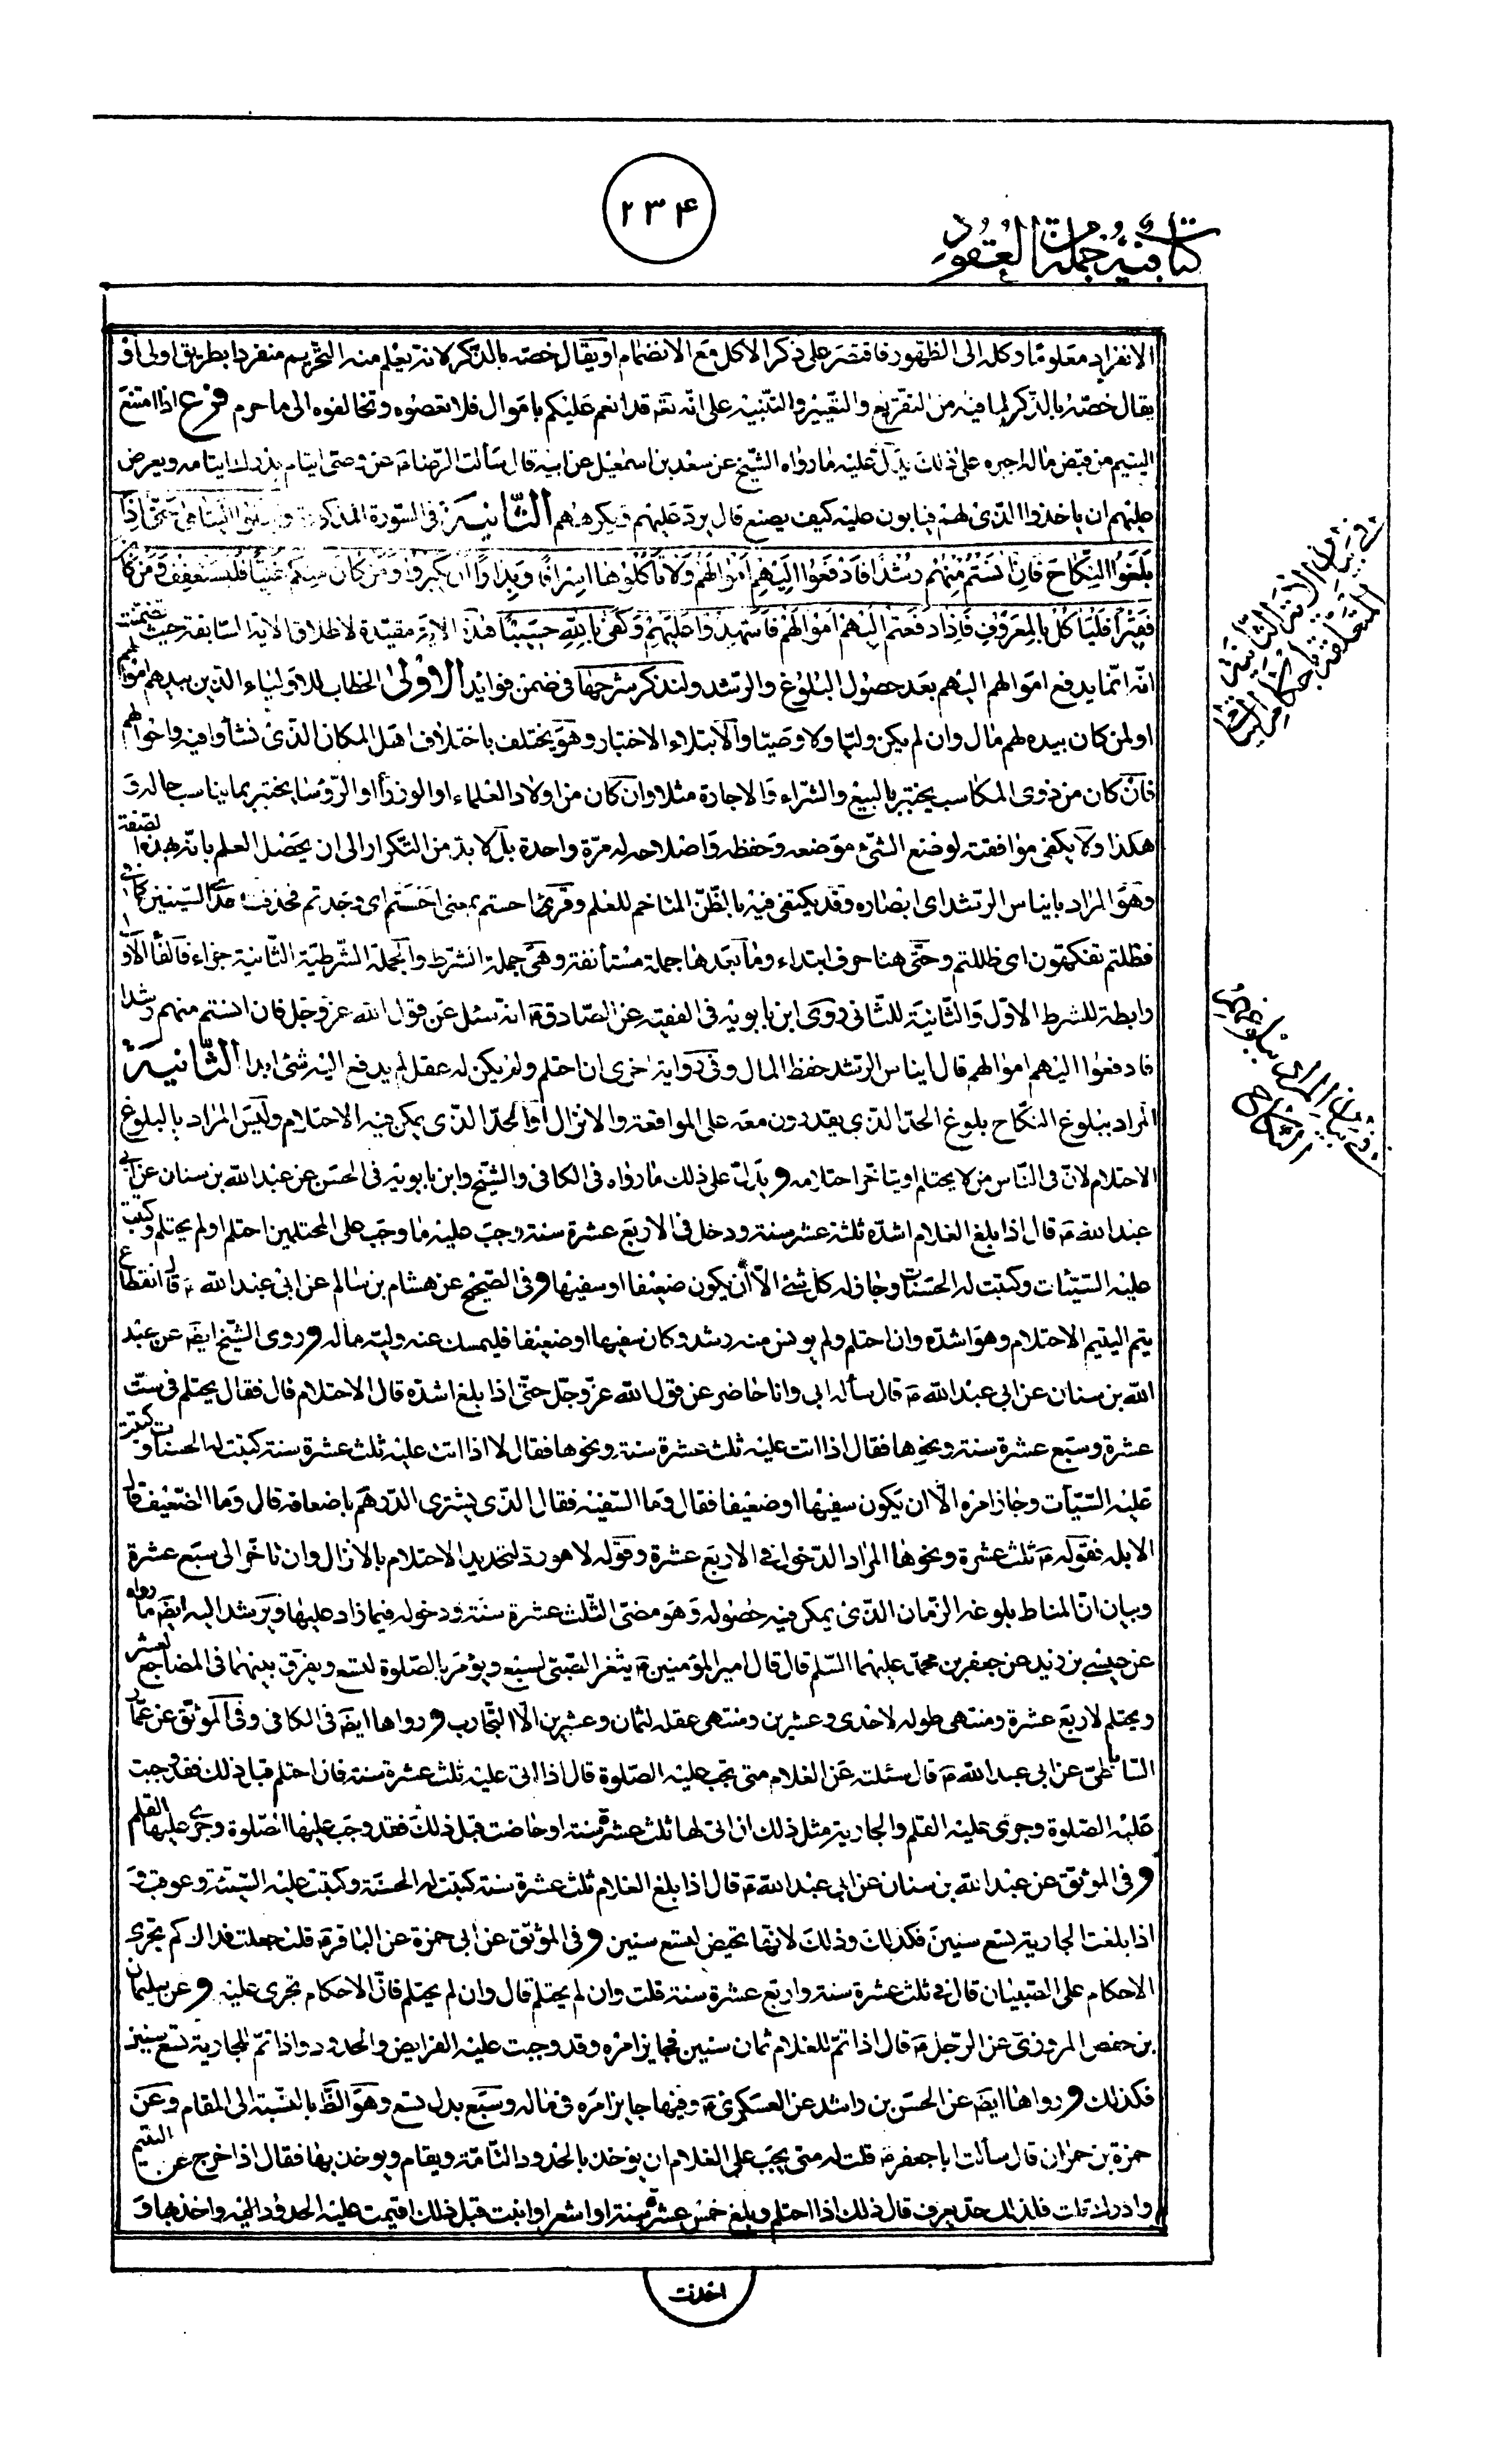 ۲۳۴
كتاب فيه جملة من العقود
الانفراد معلوما وكله الى الظهور فاقتصر على ذكر الاكل مع الانضمام او يقال خصه بالذكر لانه يعلم منه التحريم منفردا بطريق اولى او
يقال خصه بالذكر لما فيه من التقريع والتعيير والتنبيه على انه تعالى قد انعم عليكم باموال فلا تعصوه وتخالفوه الى ما حرم فرع اذا امتنع
اليتيم من قبض ماله اجبره على ذلك يدل عليه ما رواه الشيخ عن سعد بن اسمعيل عن ابيه قال سألت الرضا ع عن وصى ايتام يدرك ايتامه ويعرض
عليهم ان ياخذوا الذى لهم فيابون عليه كيف يصنع قال يرد عليهم ويكرههم الثانية فى السورة المذكورة وابتلوا اليتامى حتى اذا
بلغوا النكاح فان انستم منهم رشدا فادفعوا اليهم اموالهم ولا تأكلوها اسرافا وبدارا ان يكبروا ومن كان منكم غنيا فليستعفف ومن كان
فقيرا فليأكل بالمعروف فاذا دفعتم اليهم اموالهم فاشهدوا عليهم وكفى بالله حسيبا هذه الاية مقيدة لاطلاق الاية السابقة حيث تضمنت
انه انما يدفع اموالهم اليهم بعد حصول البلوغ والرشد ولنذكر شرحها فى ضمن فوايد الاولى الخطاب للاولياء الذين بيدهم اموالهم
او لمن كان بيده لهم مال وان لم يكن وليا ولا وصيا والابتلاء الاختبار وهو يختلف باختلاف اهل المكان الذى نشأوا فيه واحوالهم
فان كان من ذوى المكاسب يختبر بالبيع والشراء والاجارة مثلا وان كان من اولاد العلماء او الوزرأ او الرؤسا يختبر بما يناسب حاله و
هكذا ولا يكفى موافقته لوضع الشئ موضعه وحفظه واصلاحه له مرة واحدة بل لا بد من التكرار الى ان يحصل العلم بانه بهذه الصفة
وهو المراد بايناس الرشد اى ابصاره وقد يكتفى فيه بالظن المتاخم للعلم وقرئ احستم بمعنى احسستم اى وجدتم فحذفت احدى السينين كما فى
فظلتم تفكهون اى ظللتم وحتى هنا حرف ابتداء وما بعدها جملة مستأنفة وهى جملة الشرط والجملة الشرطية الثانية جزاء فالفأ الاولى
رابطة للشرط الاول والثانية للثانى روى ابن بابويه فى الفقيه عن الصادق ع انه سئل عن قول الله عز وجل فان انستم منهم رشدا
فادفعوا اليهم اموالهم قال ايناس الرشد حفظ المال وفى رواية اخرى ان احتلم ولم يكن له عقل لم يدفع اليه شئ ابدا الثانية
المراد ببلوغ النكاح بلوغ الحد الذى يقدرون معه على المواقعة والانزال او الحد الذى يمكن فيه الاحتلام وليس المراد بالبلوغ
الاحتلام لان فى الناس من لا يحتلم او يتاخر احتلامه ويدل على ذلك ما رواه فى الكافى والشيخ وابن بابويه فى الحسن عن عبد الله بن سنان عن ابى
عبد الله ع قال اذا بلغ الغلام اشده ثلثة عشر سنة ودخل فى الاربع عشرة سنة وجب عليه ما وجب على المحتلمين احتلم او لم يحتلم وكتبت
عليه السيئات وكتبت له الحسنات وجاز له كل شئ الا ان يكون ضعيفا او سفيها وفى الصحيح عن هشام بن سالم عن ابى عبد الله ع قال انقطاع
يتم اليتيم الاحتلام وهو اشده وان احتلم ولم يونس منه رشد وكان سفيها او ضعيفا فليمسك عنه وليه ماله وروى الشيخ ايضا عن عبد
الله بن سنان عن ابى عبد الله ع قال سأله ابى وانا حاضر عن قول الله عز وجل حتى اذا بلغ اشده قال الاحتلام قال فقال يحتلم فى ست
عشرة وسبع عشرة سنة ونحوها فقال اذا اتت عليه ثلث عشرة سنة ونحوها فقال لا اذا اتت عليه ثلث عشرة سنة كتبت له الحسنات وكتبت
عليه السيأت وجاز امره الا ان يكون سفيها او ضعيفا فقال وما السفيه فقال الذى يشترى الدرهم باضعافه قال وما الضعيف قال
الابله فقوله ع ثلث عشرة ونحوها المراد الدخول فى الاربع عشرة وقوله لا هو رد لتحديد الاحتلام بالانزال وان تاخر الى سبع عشرة
وبيان ان المناط بلوغه الزمان الذى يمكن فيه حصوله وهو مضى الثلث عشرة سنة ودخوله فيما زاد عليها ويرشد اليه ايضا ما رواه
عن عيسى بن زيد عن جعفر بن محمد عليهما السلم قال قال امير المؤمنين ع يثغر الصبى لسبع ويؤمر بالصلوة لتسع ويفرق بينهما فى المضاجع لعشر
ويحتلم لاربع عشرة ومنتهى طوله لاحدى وعشرين ومنتهى عقله لثمان وعشرين الا التجارب ورواها ايضا فى الكافى وفى الموثق عن عمار
الساباطى عن ابى عبد الله ع قال سئلته عن الغلام متى تجب عليه الصلوة قال اذا اتى عليه ثلث عشرة سنة فان احتلم قبل ذلك فقد وجبت
عليه الصلوة وجرى عليه القلم والجارية مثل ذلك ان اتى لها ثلث عشرة سنة او حاضت قبل ذلك فقد وجب عليها الصلوة وجرى عليها القلم
وفى الموثق عن عبد الله بن سنان عن ابى عبد الله ع قال اذا بلغ الغلام ثلث عشرة سنة كتبت له الحسنة وكتبت عليه السيئة وعوقب و
اذا بلغت الجارية تسع سنين فكذلك وذلك لانها تحيض لتسع سنين وفى الموثق عن ابى حمزة عن الباقر ع قلت جعلت فداك كم تجرى
الاحكام على الصبيان قال فى ثلث عشرة سنة واربع عشرة سنة قلت وان لم يحتلم قال وان لم يحتلم فان الاحكام تجرى عليه وعن سليمان
بن حفص المروزى عن الرجل ع قال اذا تم للغلام ثمان سنين فجايز امره وقد وجبت عليه الفرايض والحدود واذا تم للجارية تسع سنين
فكذلك ورواها ايضا عن الحسن بن راشد عن العسكرى ع وفيها جايز امره فى ماله وسبع بدل تسع وهو الظ بالنسبة الى المقام وعن
حمزة بن حمران قال سألت ابا جعفر ع قلت له متى يجب على الغلام ان يؤخذ بالحدود التامة ويقام ويوخذ بها فقال اذا خرج عن اليتم
وادرك قلت فلذلك حد يعرف قال ذلك اذا احتلم وبلغ خمس عشرة سنة او اشعر او انبت قبل ذلك اقيمت عليه الحدود التامه واخذ بها و
اخذت
فى بيان الاية الثانية
المتعلقة باحكام اليتامى
فى بيان المراد ببلوغ
النكاح